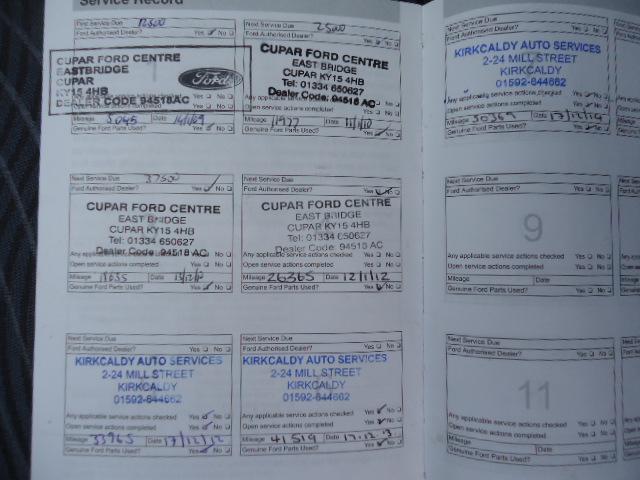 Service Record
First Service Due 12500
Ford Authorised Dealer? Yes No
CUPAR FORD CENTRE
EASTBRIDGE
CUPAR
KY15 4HB
DEALER CODE 94518AC
Ford
Open service actions completed Yes No
Mileage 5045 Date
Genuine Ford Parts Used? Yes No
Next Service Due 2500
Ford Authorised Dealer? Yes No
CUPAR FORD CENTRE
EAST BRIDGE
CUPAR KY15 4HB
Tel: 01334 650627
Dealer Code: 94518 AC
Open service actions completed Yes No
Mileage Date
Genuine Ford Parts Used? Yes No
Next Service Due 37500
Ford Authorised Dealer? Yes No
CUPAR FORD CENTRE
EAST BRIDGE
CUPAR KY15 4HB
Tel: 01334 650627
Dealer Code: 94518 AC
Open service actions completed Yes No
Mileage Date
Genuine Ford Parts Used? Yes No
Next Service Due
Ford Authorised Dealer? Yes No
CUPAR FORD CENTRE
EAST BRIDGE
CUPAR KY15 4HB
Tel: 01334 650627
Dealer Code: 94518 AC
Open service actions completed Yes No
Mileage 26365 Date 12/1/12
Genuine Ford Parts Used? Yes No
Next Service Due
Ford Authorised Dealer? Yes No
KIRKCALDY AUTO SERVICES
2-24 MILL STREET
KIRKCALDY
01592-644662
Any applicable service actions checked Yes No
Open service actions completed Yes No
Mileage 33965 Date 17/12/12
Genuine Ford Parts Used? Yes No
Next Service Due
Ford Authorised Dealer? Yes No
KIRKCALDY AUTO SERVICES
2-24 MILL STREET
KIRKCALDY
01592-644662
Any applicable service actions checked Yes No
Open service actions completed Yes No
Mileage 41519 Date 17.12.13
Genuine Ford Parts Used? Yes No
Next Service Due
Ford Authorised Dealer? Yes No
KIRKCALDY AUTO SERVICES
2-24 MILL STREET
KIRKCALDY
01592-644662
Any applicable service actions checked Yes No
Open service actions completed Yes No
Mileage 50369 Date 17/12/14
Genuine Ford Parts Used? Yes No
Next Service Due
Ford Authorised Dealer? Yes No
9
Any applicable service actions checked Yes No
Open service actions completed Yes No
Mileage Date
Genuine Ford Parts Used? Yes No
Next Service Due
Ford Authorised Dealer? Yes No
11
Any applicable service actions checked Yes No
Open service actions completed Yes No
Mileage Date
Genuine Ford Parts Used? Yes No